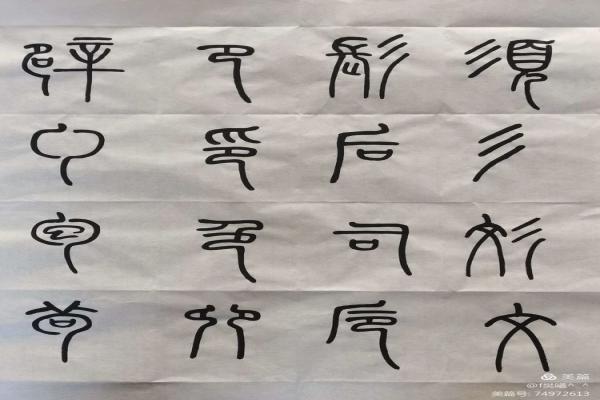 須彡彣文
髟后司卮
卩印色𠨍
辟勹包茍
美篇
美篇号: 74972613